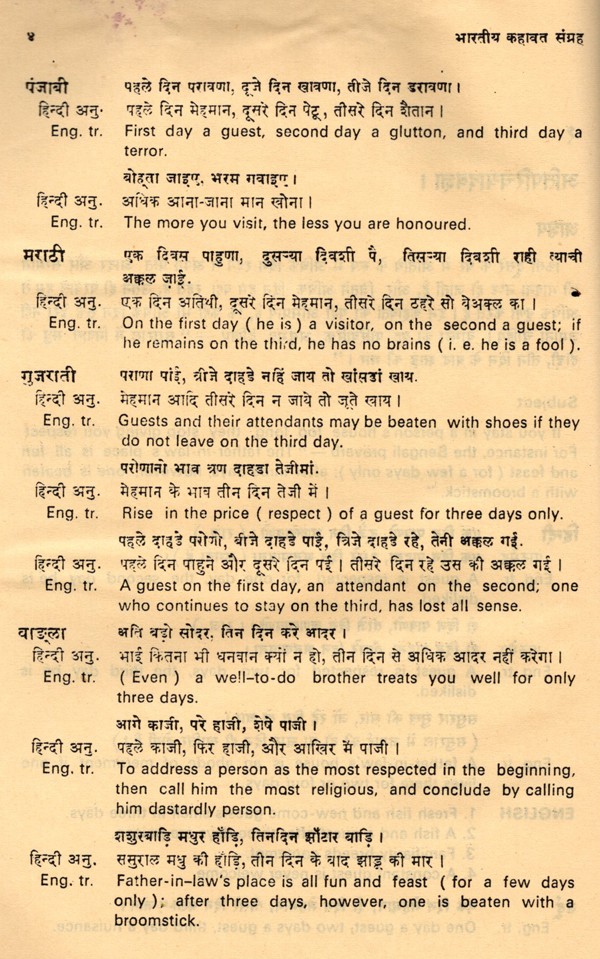 ४ भारतीय कहावत संग्रह
पंजाबी पहले दिन परावणा, दूजे दिन खावणा, तीजे दिन डरावणा।
हिन्दी अनु. पहले दिन मेहमान, दूसरे दिन पेटू, तीसरे दिन शैतान।
Eng. tr. First day a guest, second day a glutton, and third day a
terror.
बोहता जाइए, भरम गवाइए।
हिन्दी अनु. अधिक आना-जाना मान खोना।
Eng. tr. The more you visit, the less you are honoured.
मराठी एक दिवस पाहुणा, दुसऱ्या दिवशी पै, तिसऱ्या दिवशी राही त्याची
अक्कल जाई.
हिन्दी अनु. एक दिन अतिथी, दूसरे दिन मेहमान, तीसरे दिन ठहरे सो बेअक्ल का।
Eng. tr. On the first day ( he is ) a visitor, on the second a guest; if
he remains on the third, he has no brains ( i. e. he is a fool ).
गुजराती पराणा पांई, त्रीजे दाहडे नहिं जाय तो खांसडां खाय.
हिन्दी अनु. मेहमान आदि तीसरे दिन न जाये तो जूते खाय।
Eng. tr. Guests and their attendants may be beaten with shoes if they
do not leave on the third day.
परोणानो भाव त्रण दाहडा तेजीमां.
हिन्दी अनु. मेहमान के भाव तीन दिन तेजी में।
Eng. tr. Rise in the price ( respect ) of a guest for three days only.
पहले दाहडे परोगो, बीजे दाहडे पाई, त्रिजे दाहडे रहे, तेनी अक्कल गई.
हिन्दी अनु. पहले दिन पाहुने और दूसरे दिन पई। तीसरे दिन रहे उस की अक्कल गई।
Eng. tr. A guest on the first day, an attendant on the second; one
who continues to stay on the third, has lost all sense.
वाङ्ला अति बड़ो सोदर, तिन दिन करे आदर।
हिन्दी अनु. भाई कितना भी धनवान क्यों न हो, तीन दिन से अधिक आदर नहीं करेगा।
Eng. tr. ( Even ) a well-to-do brother treats you well for only
three days.
आगे काजी, परे हाजी, शेषे पाजी।
हिन्दी अनु. पहले काजी, फिर हाजी, और आखिर में पाजी।
Eng. tr. To address a person as the most respected in the beginning,
then call him the most religious, and conclude by calling
him dastardly person.
शशुरबाड़ि मधुर हाँड़ि, तिनदिन झाँटार बाड़ि।
हिन्दी अनु. ससुराल मधु की हाँड़ि, तीन दिन के बाद झाड़ू की मार।
Eng. tr. Father-in-law's place is all fun and feast ( for a few days
only ); after three days, however, one is beaten with a
broomstick.